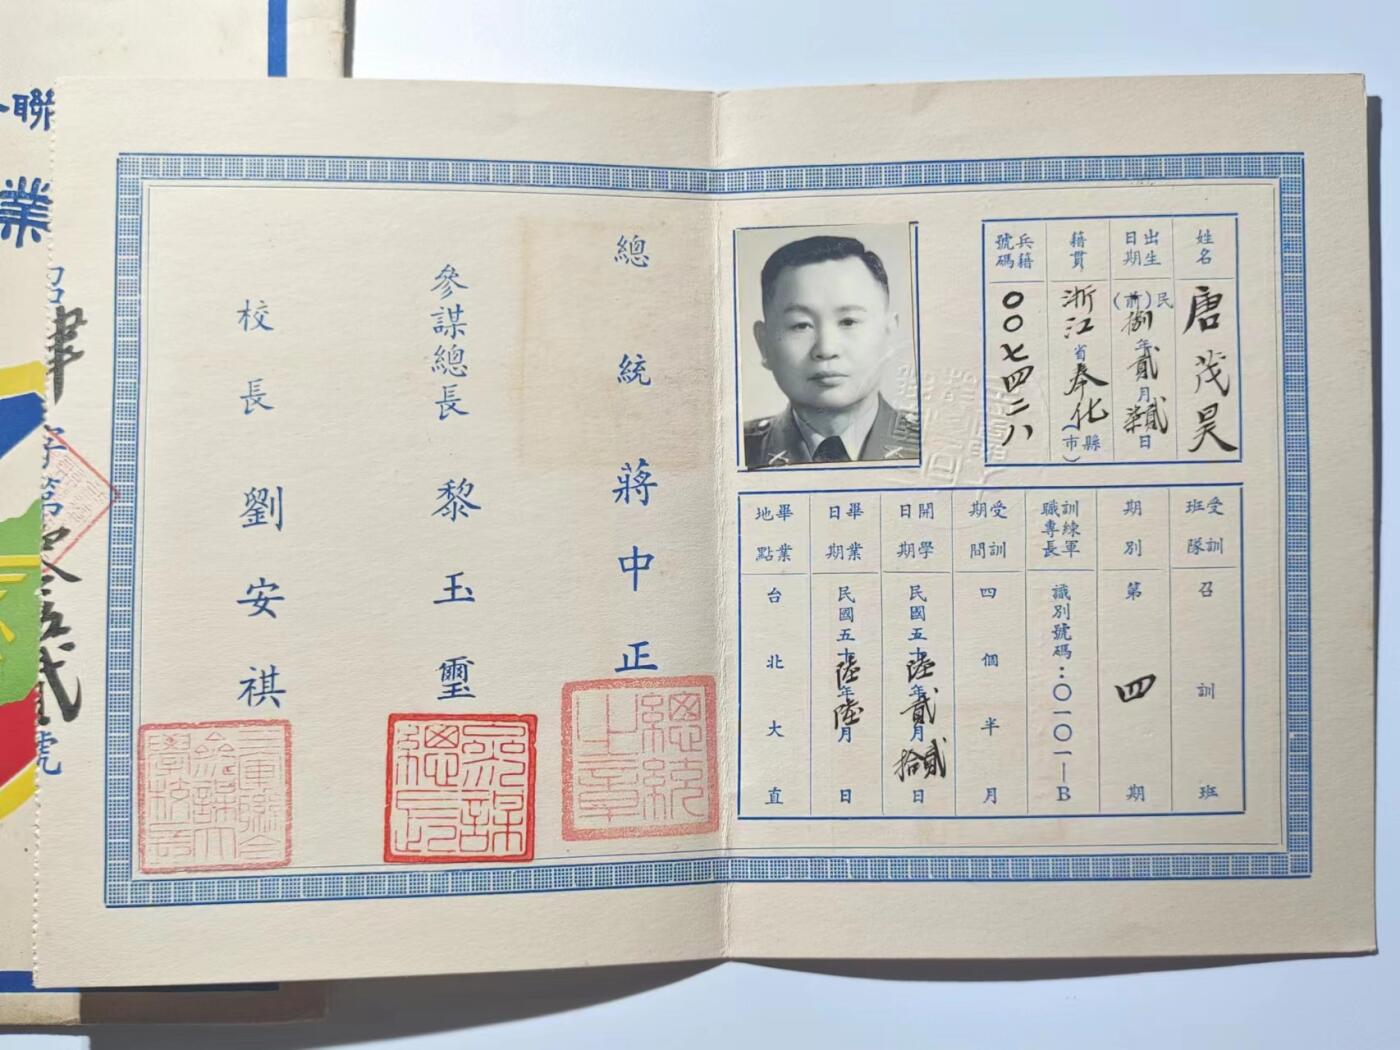 姓名 唐茂昊
出生日期 民(前)捌年貳月柒貳日
籍貫 浙江省奉化縣(市)
兵籍號碼 〇〇七四二八
受訓班隊 召訓班
期別 第四期
訓練軍職專長 識別號碼:〇一〇一—B
受訓期間 四個半月
開學日期 民國五十陸年貳月拾貳日
畢業日期 民國五十陸年陸月日
畢業地點 台北大直
總統 蔣中正
總統之章
參謀總長 黎玉璽
參謀總長
校長 劉安祺
三軍聯合參謀大學校長
聯
業
字第
號